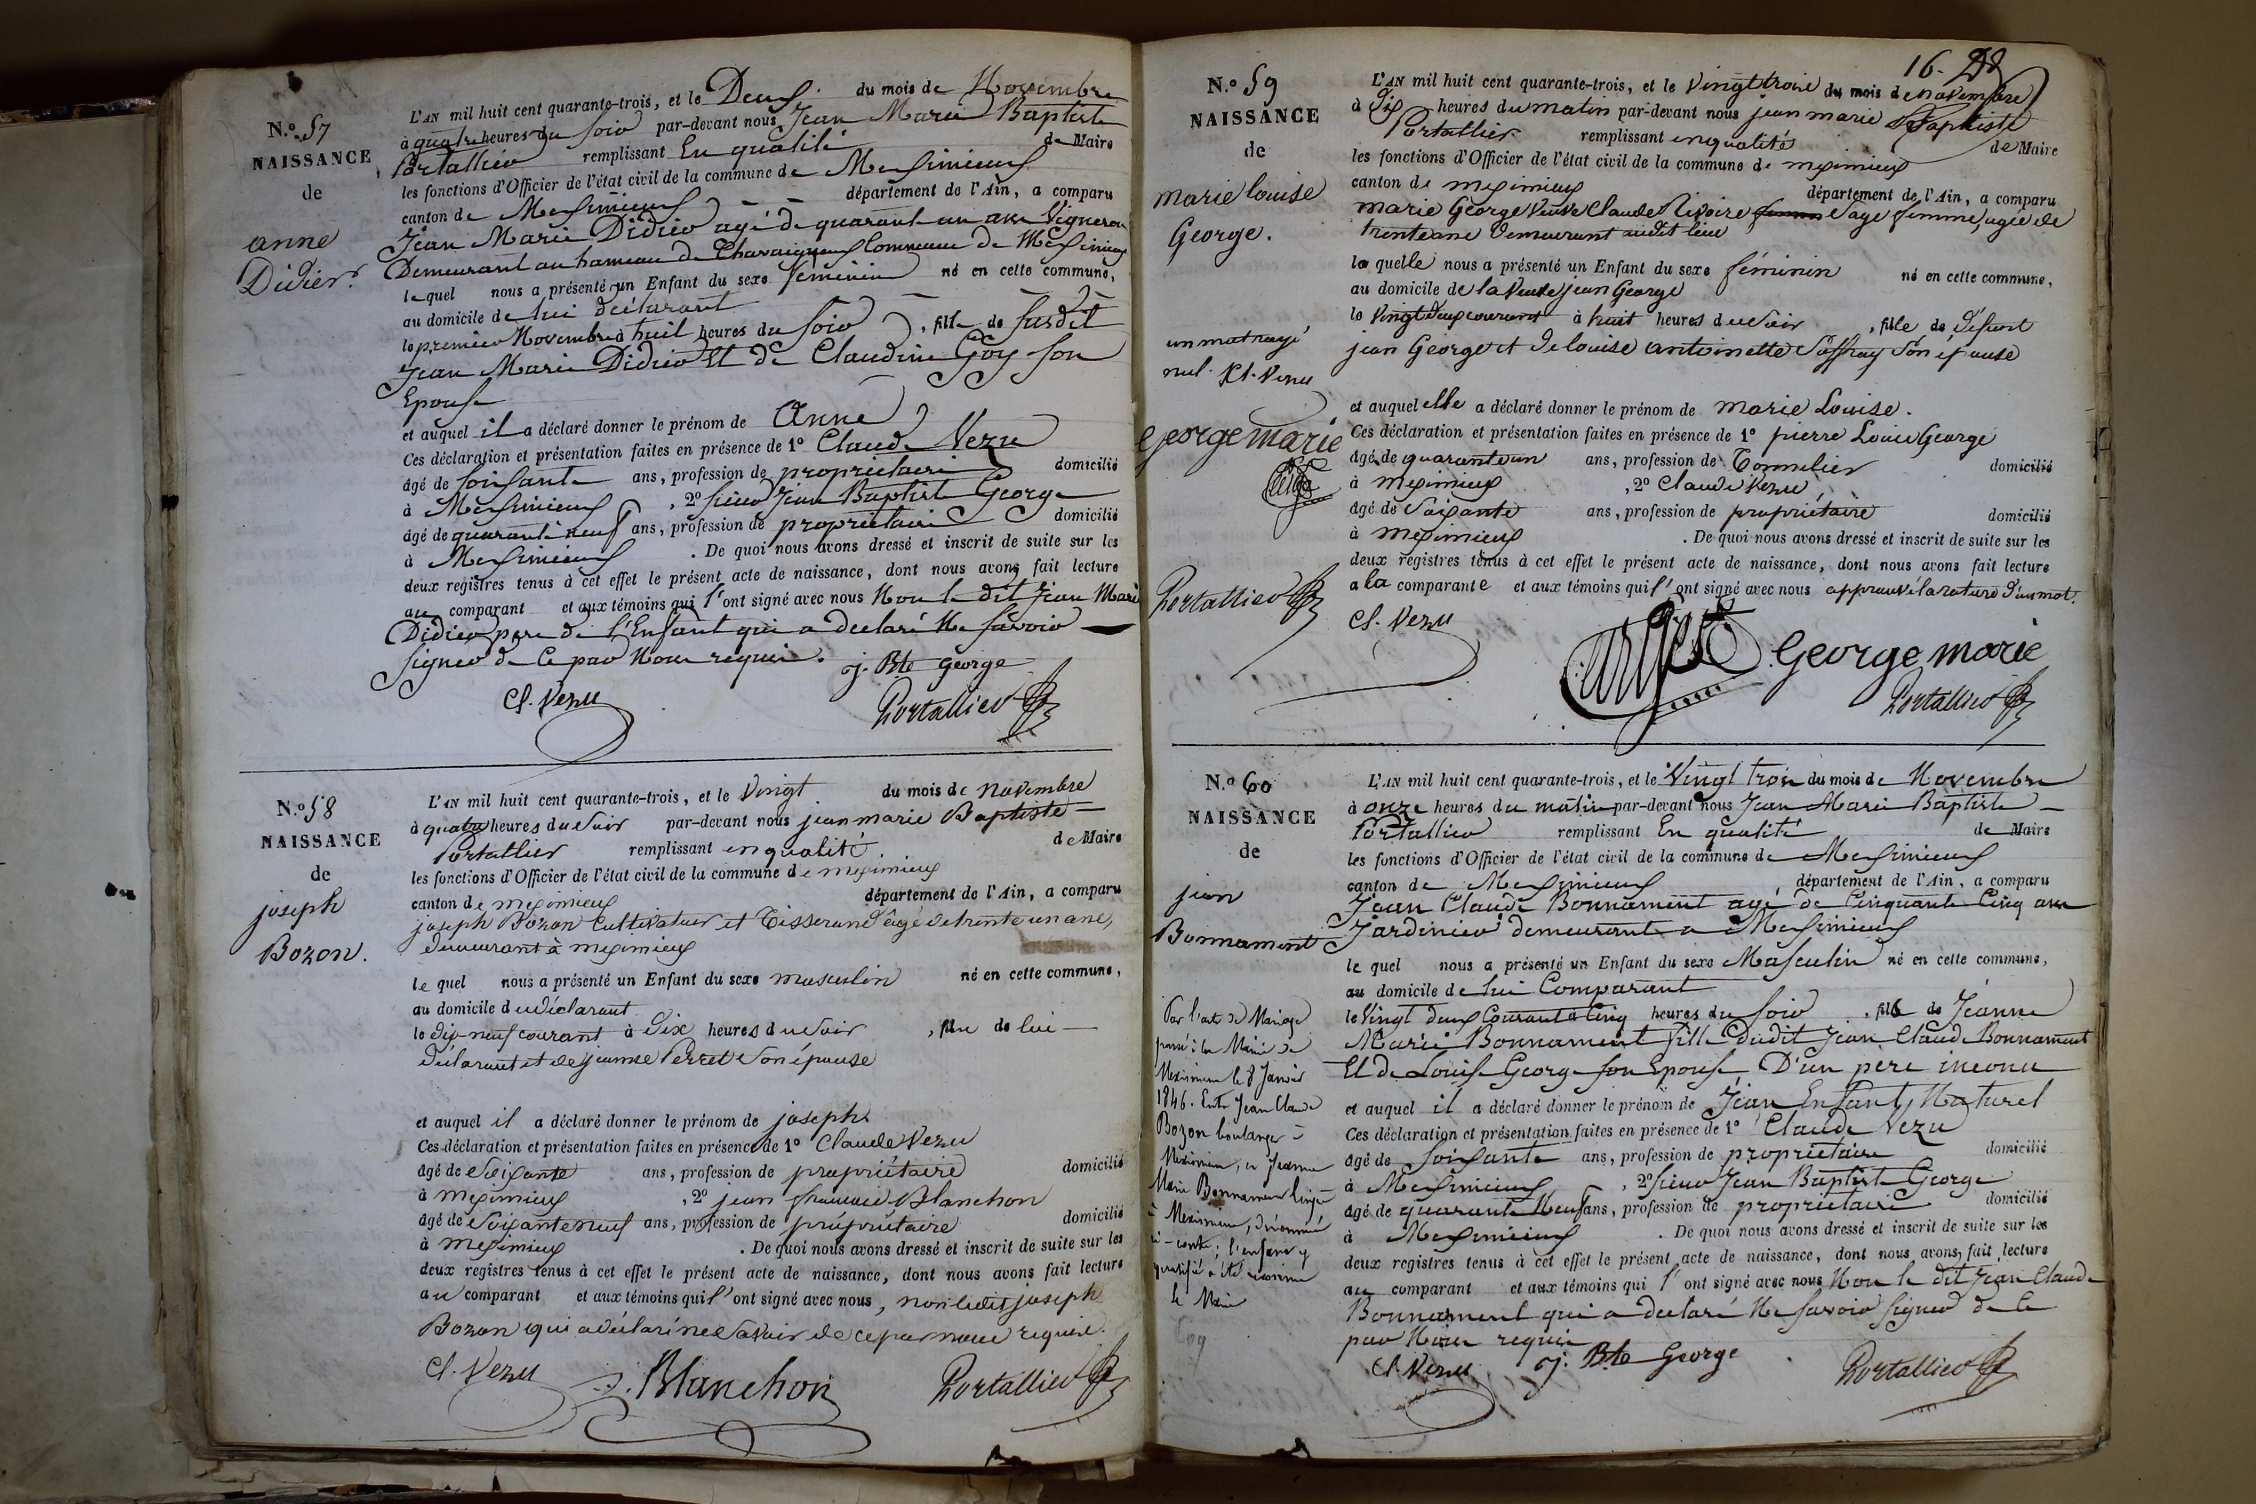 N.º 57
NAISSANCE
de
anne
Didier.
L'AN mil huit cent quarante-trois, et le Deux du mois de Novembre
à quatre heures du soir par-devant nous Jean Marie Baptiste
Portallier remplissant En qualité de Maire
les fonctions d'Officier de l'état civil de la commune de Meximieux
canton de Meximieux département de l'Ain, a comparu
Jean Marie Didier agé de quarant un ans Vigneron
Demeurant au hameau de Chavaigneux Commune de Meximieux
lequel nous a présenté un Enfant du sexe Féminin né en cette commune,
au domicile de lui déclarant
le premier Novembre à huit heures du soir, fille de susdit
Jean Marie Didier Et de Claudine Goy son
Epouse
et auquel il a déclaré donner le prénom de Anne
Ces déclaration et présentation faites en présence de 1º Claude Vezu
âgé de soixante ans, profession de propriétaire domicilié
à Meximieux, 2º sieur Jean Baptist George
âgé de quarante neuf ans, profession de propriétaire domicilié
à Meximieux. De quoi nous avons dressé et inscrit de suite sur les
deux registres tenus à cet effet le présent acte de naissance, dont nous avons fait lecture
au comparant et aux témoins qui l'ont signé avec nous Non le dit Jean Marie
Didier pere de l'Enfant qui a declaré Ne savoir
signer de Ce par Nous requi.
j. Bte george
Cl. Vezu
Portallier
N.º 58
NAISSANCE
de
joseph
Bozon.
L'AN mil huit cent quarante-trois, et le vingt du mois de novembre
à quatre heures du soir par-devant nous jean marie Baptiste
Portallier remplissant en qualité de Maire
les fonctions d'Officier de l'état civil de la commune de meximieux
canton de meximieux département de l'Ain, a comparu
joseph Bozon Cultivateur et Tisserand âgé de trente un ans,
demeurant à meximieux
le quel nous a présenté un Enfant du sexe masculin né en cette commune,
au domicile du déclarant
le dix neuf courant à Dix heures du soir, fils de lui
déclarant et de jeanne Perret son épouse
et auquel il a déclaré donner le prénom de joseph
Ces déclaration et présentation faites en présence de 1º Claude Vezu
âgé de soixante ans, profession de propriétaire domicilié
à meximieux, 2º jean francois Blanchon
âgé de soixante neuf ans, profession de propriétaire domicilié
à meximieux. De quoi nous avons dressé et inscrit de suite sur les
deux registres tenus à cet effet le présent acte de naissance, dont nous avons fait lecture
au comparant et aux témoins qui l'ont signé avec nous, non ledit joseph
Bozon qui a déclaré ne savoir de ce par nous requis.
Cl. Vezu
J. Blanchon
Portallier
16.
N.º 59
NAISSANCE
de
marie louise
George.
un mot rayé
nul. Cl. Vezu
george marie
Portallier
L'AN mil huit cent quarante-trois, et le vingt trois du mois de novembre
à dix heures du matin par-devant nous jean marie Baptiste
Portallier remplissant en qualité de Maire
les fonctions d'Officier de l'état civil de la commune de meximieux
canton de meximieux département de l'Ain, a comparu
marie George Veuve Claude Rivoire sage femme, agée de
trente ans Demeurant audit lieu
la quelle nous a présenté un Enfant du sexe féminin né en cette commune,
au domicile de la Veuve jean George
le vingt deux courant à huit heures du soir, fille de Défunt
jean George et de louise antoinette Saffray son épouse
et auquel elle a déclaré donner le prénom de marie Louise.
Ces déclaration et présentation faites en présence de 1º pierre Louis George
âgé de quarante un ans, profession de Tonnelier domicilié
à meximieux, 2º Claude Vezu
âgé de soixante ans, profession de propriétaire domicilié
à meximieux. De quoi nous avons dressé et inscrit de suite sur les
deux registres tenus à cet effet le présent acte de naissance, dont nous avons fait lecture
a la comparante et aux témoins qui l'ont signé avec nous approuvé la rature d'un mot.
Cl. Vezu
George marie
Portallier
N.º 60
NAISSANCE
de
jean
Bonnament
Par l'acte de Mariage
passé à la Mairie de
Meximieux le 8 Janvier
1846. Entre Jean Claude
Bozon boulanger à
Meximieux, et Jeanne
Marie Bonnament lingère
à Meximieux, dénommé
ci-contre; l'enfant y
qualifié a été reconnu
le Maire
L'AN mil huit cent quarante-trois, et le Vingt trois du mois de Novembre
à onze heures du matin par-devant nous Jean Marie Baptiste
Portallier remplissant En qualité de Maire
les fonctions d'Officier de l'état civil de la commune de Meximieux
canton de Meximieux département de l'Ain, a comparu
Jean Claude Bonnament agé de Cinquante Cinq ans
Jardinier demeurant a Meximieux
le quel nous a présenté un Enfant du sexe Masculin né en cette commune,
au domicile de lui Comparant
le Vingt deux Courant à Cinq heures du soir, fils de Jeanne
Marie Bonnament fille dudit Jean Claude Bonnament
Et de Louise George son Epouse D'un père inconu
et auquel il a déclaré donner le prénom de Jean Enfant Naturel
Ces déclaration et présentation faites en présence de 1º Claude Vezu
âgé de soixante ans, profession de propriétaire domicilié
à Meximieux, 2º sieur Jean Baptist George
âgé de quarante Neuf ans, profession de propriétaire domicilié
à Meximieux. De quoi nous avons dressé et inscrit de suite sur les
deux registres tenus à cet effet le présent acte de naissance, dont nous avons fait lecture
au comparant et aux témoins qui l'ont signé avec nous Non le dit Jean Claude
Bonnament qui a declaré Ne savoir signer de Ce
par Nous requi
Cl. Vezu
j. Bte George
Portallier